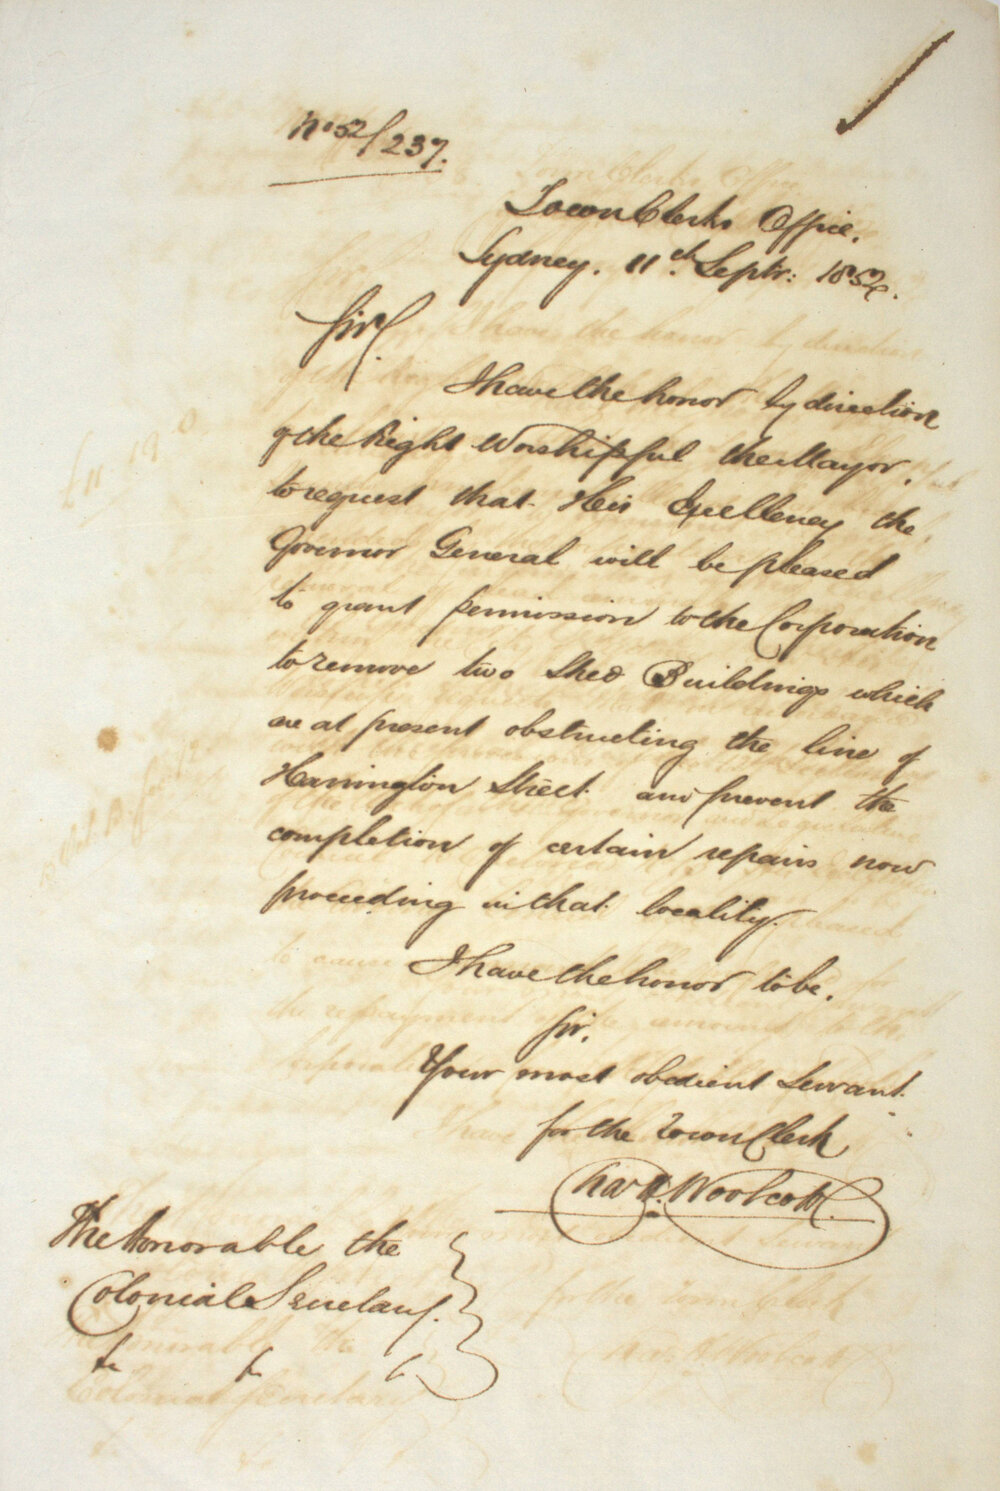 No 52/237.
Town Clerks Office.
Sydney. 11th Septr: 1852.
Sir,
I have the honor by direction
of the Right Worshipful the Mayor,
to request that His Excellency the
Governor General will be pleased
to grant permission to the Corporation
to remove two Shed Buildings which
are at present obstructing the line of
Harrington Street and prevent the
completion of certain repairs now
proceeding in that locality.
I have the honor to be.
Sir.
Your most obedient Servant.
for the Town Clerk
Chas H. Woolcott.
The Honorable the
Colonial Secretary.
&c &c &c